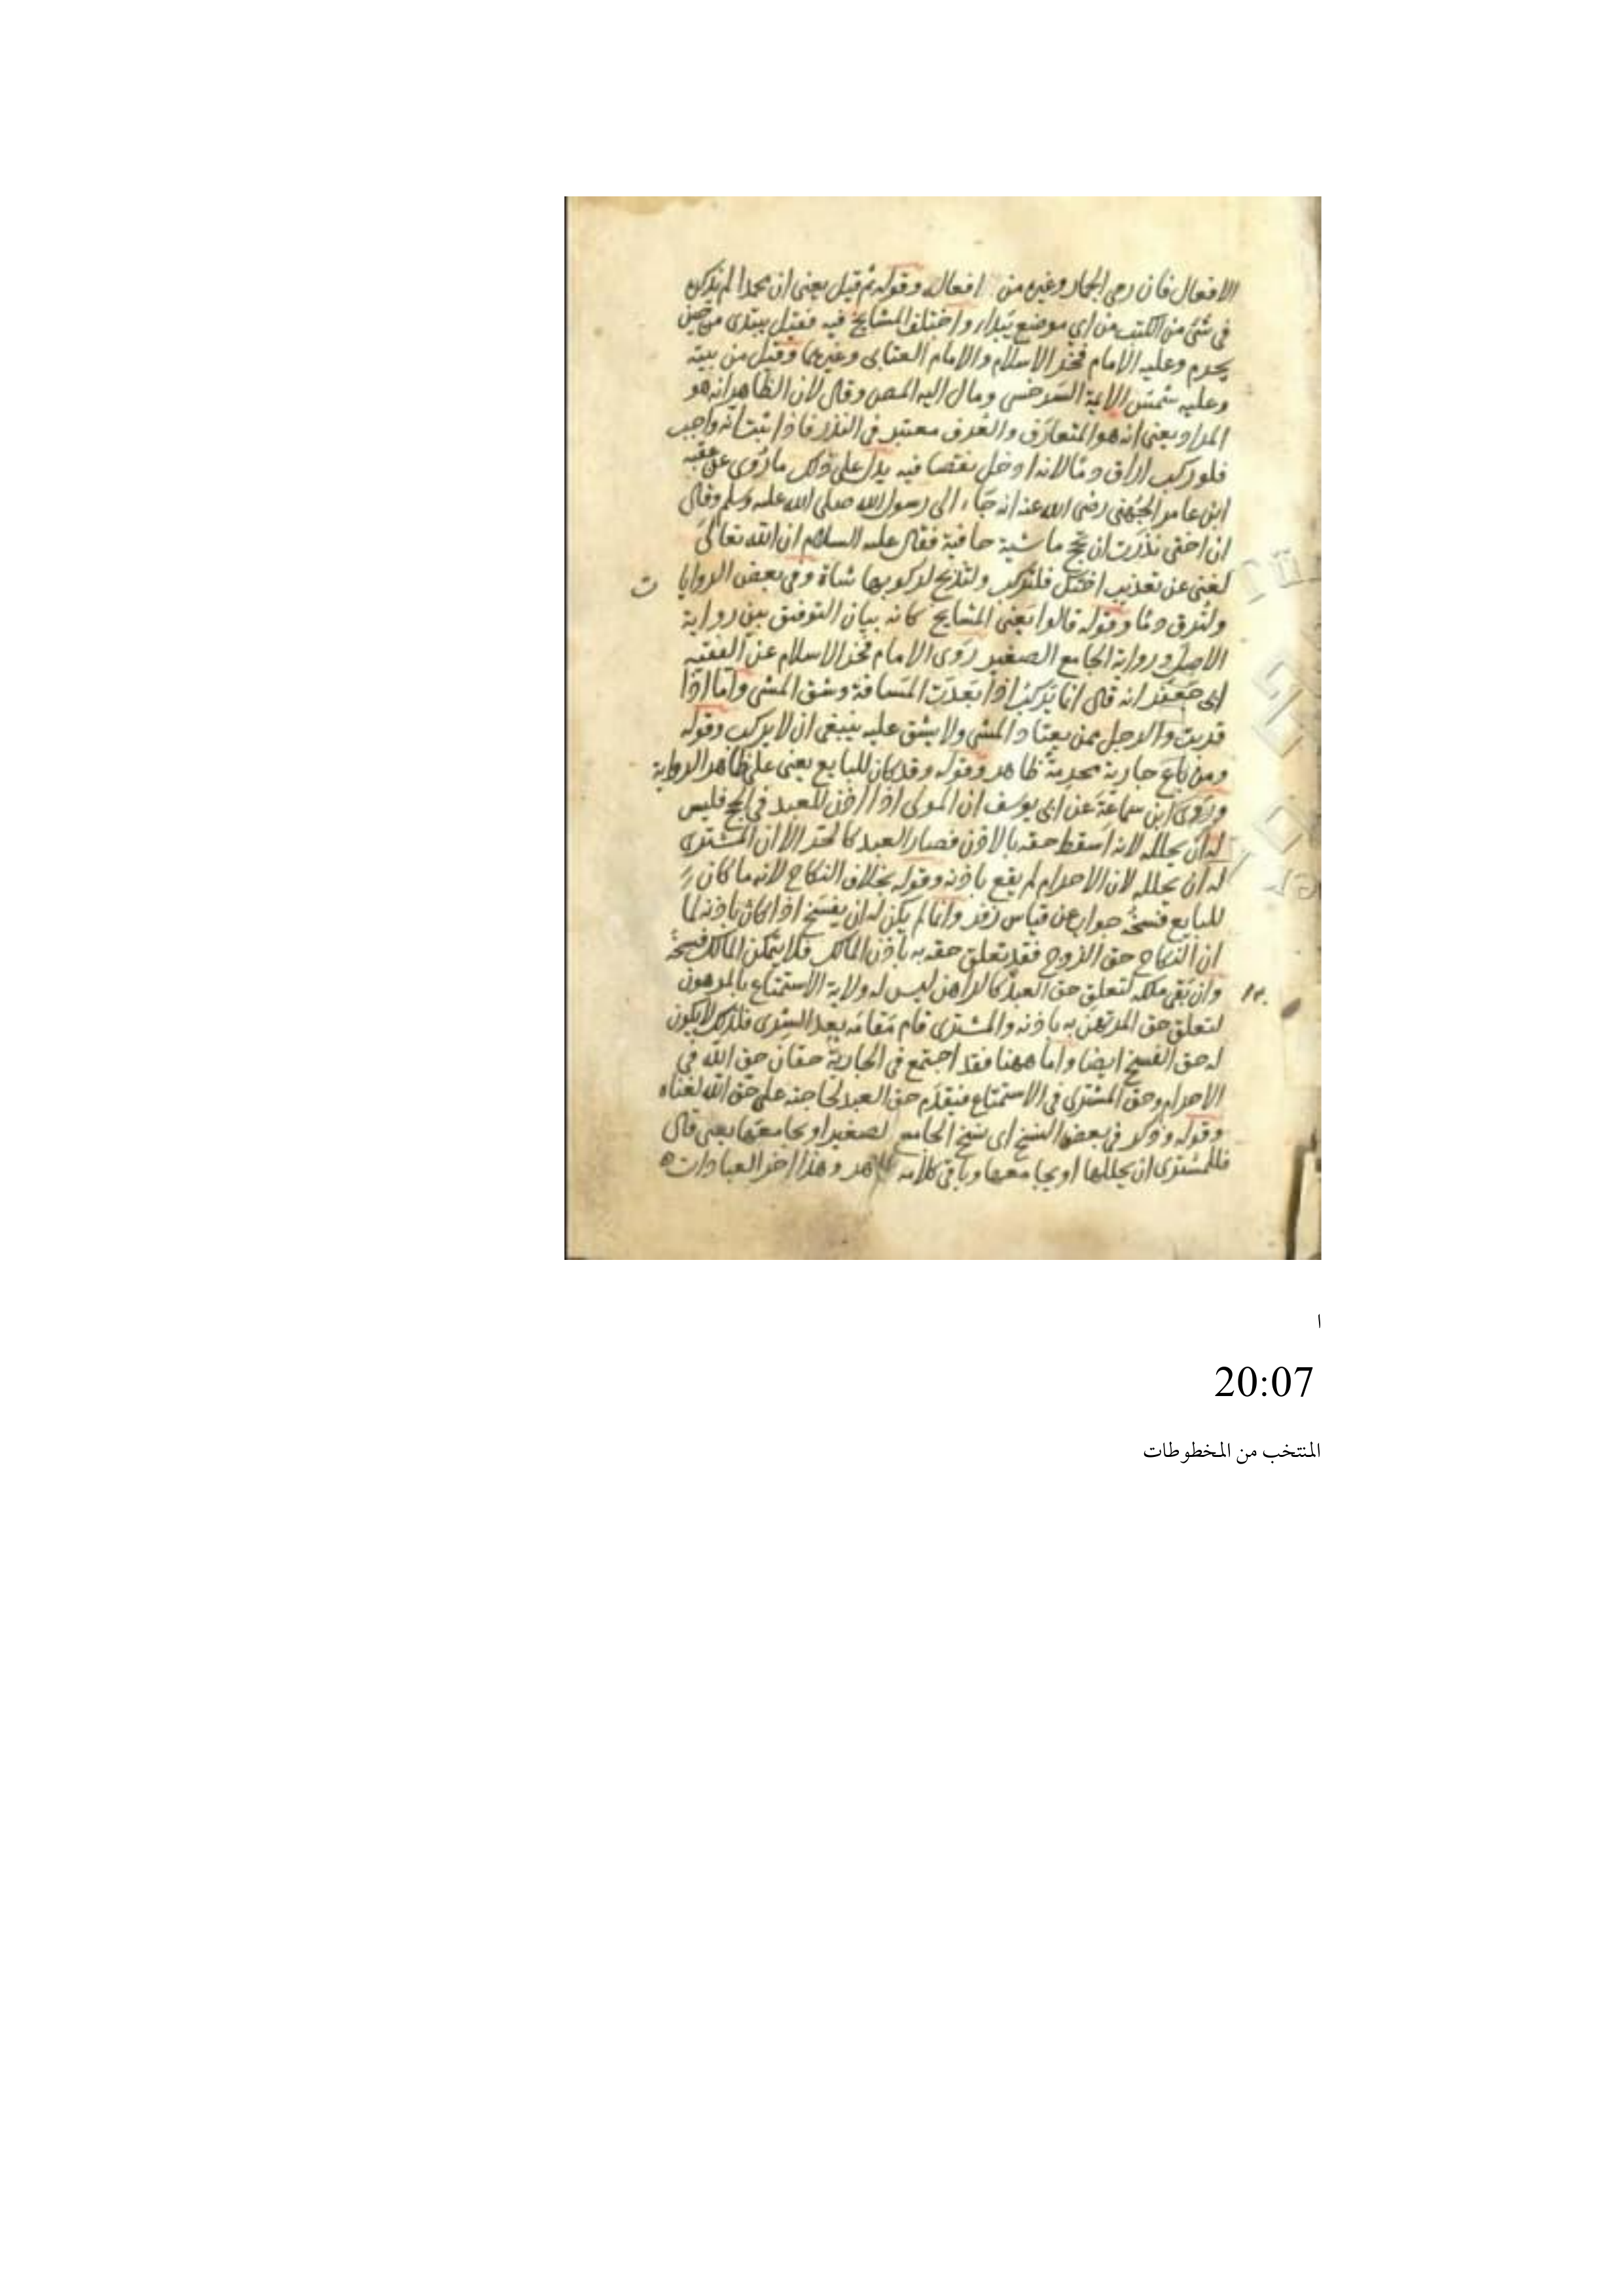 الافعال فان رمى الجمار وغيره من افعاله وقوله ثم قيل يعنى ان محمدا لم يذكره
فى شئ من الكتب من اى موضع يبدأ واختلف المشايخ فيه فقيل يبتدى من حين
يحرم وعليه الامام فخر الاسلام والامام العتابى وغيرهما وقيل من بيته
وعليه شمس الائمة السرخسى ومال اليه المص وقال لان الظاهر انه هو
المراد يعنى انه هو المتعارف والعرف معتبر فى النذر فاذا ثبت انه واجب
فلو ركب اراق دما لانه ادخل نقصا فيه يدل على ذلك ما روى عن عقبه
ابن عامر الجهنى رضى الله عنه انه جاء الى رسول الله صلى الله عليه وسلم وقال
ان اختى نذرت ان تحج ماشية حافية فقال عليه السلام ان الله تعالى
لغنى عن تعذيب اختك فلتركب ولتذبح لركوبها شاة وفى بعض الروايا ت
ولترق دما وقوله قالوا يعنى المشايخ كانه بيان التوفيق بين رواية
الاصل ورواية الجامع الصغير روى الامام فخر الاسلام عن الفقيه
ابى جعفر انه قال انما يركب اذا بعدت المسافة وشق المشى واما اذا
قربت والرجل ممن يعتاد المشى ولا يشق عليه ينبغى ان لا يركب وقوله
ومن باع جارية محرمة ظاهر وقوله وقد كان للبايع يعنى على ظاهر الرواية
وروى ابن سماعة عن ابى يوسف ان المولى اذا اذن للعبد فى الحج فليس
له ان يحلله لانه اسقط حقه بالاذن فصار العبد كالحر الا ان المشترى
له ان يحلله لان الاحرام لم يقع باذنه وقوله بخلاف النكاح لانه ما كان
للبايع فسخه جواب عن قياس زفر وانما لم يكن له ان يفسخ اذا كان باذنه لما
ان النكاح حق الزوج فقد تعلق حقه به باذن المالك فلا يتمكن المالك فسخه
وان بقى ملكه لتعلق حق العبد كالراهن ليس له ولاية الاستمتاع بالمرهون
لتعلق حق المرتهن به باذنه والمشترى قام مقامه بعد الشرى فلذلك لا يكون
له حق الفسخ ايضا واما ههنا فقد اجتمع فى الجارية حقان حق الله فى
الاحرام وحق المشترى فى الاستمتاع فيقدم حق العبد لحاجته على حق الله لغناه
وقوله وذكر فى بعض النسخ اى نسخ الجامع الصغير او يجامعها يعنى قال
فللمشترى ان يحللها او يجامعها وباقى كلامه ظاهر وهذا اخر العبادات
ا
20:07
المنتخب من المخطوطات